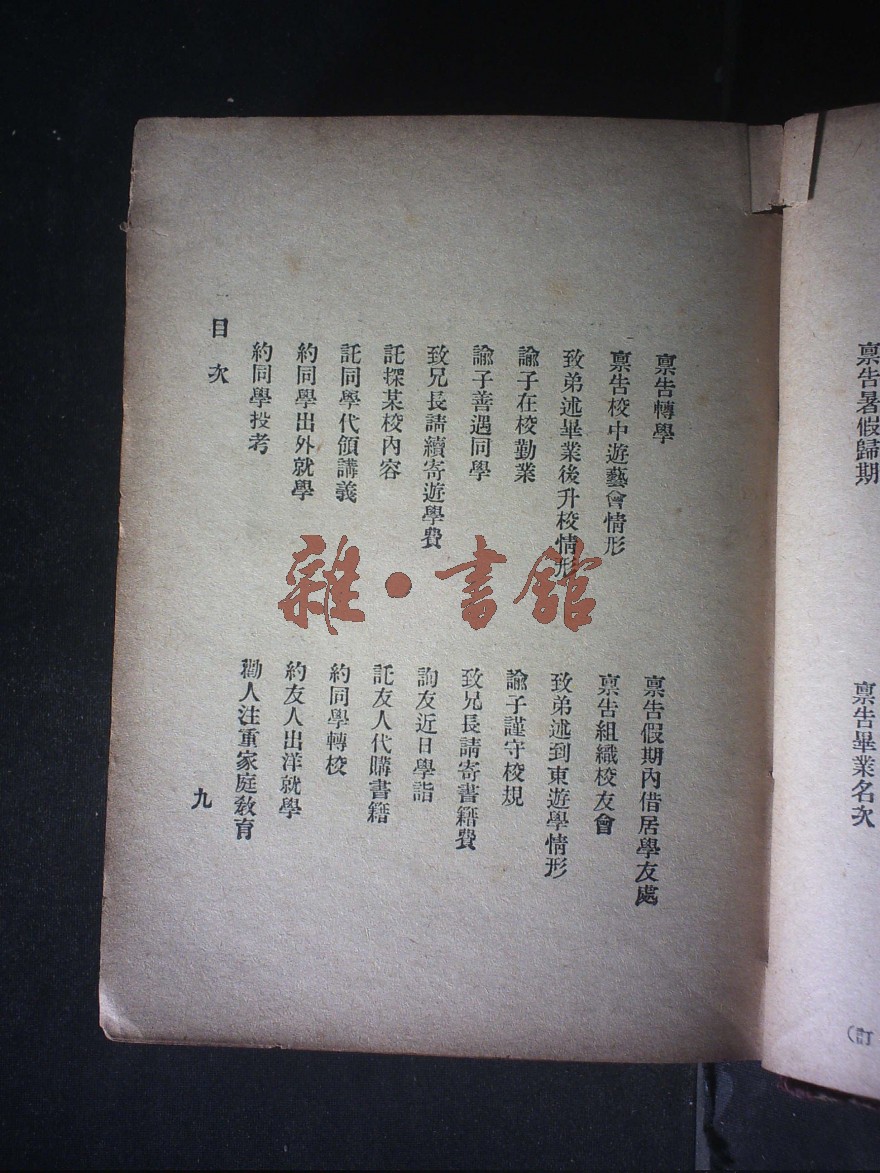 稟告暑假歸期
稟告畢業名次
訂
稟告轉學
稟告假期內借居學友處
稟告校中遊藝會情形
稟告組織校友會
致弟述畢業後升校情形
致弟述到東遊學情形
諭子在校勤業
諭子謹守校規
諭子善遇同學
致兄長請寄書籍費
致兄長請續寄遊學費
詢友近日學詣
託探某校內容
託友人代購書籍
託同學代領講義
約同學轉校
約同學出外就學
約友人出洋就學
約同學投考
勸人注重家庭教育
目次
九
雜·書館